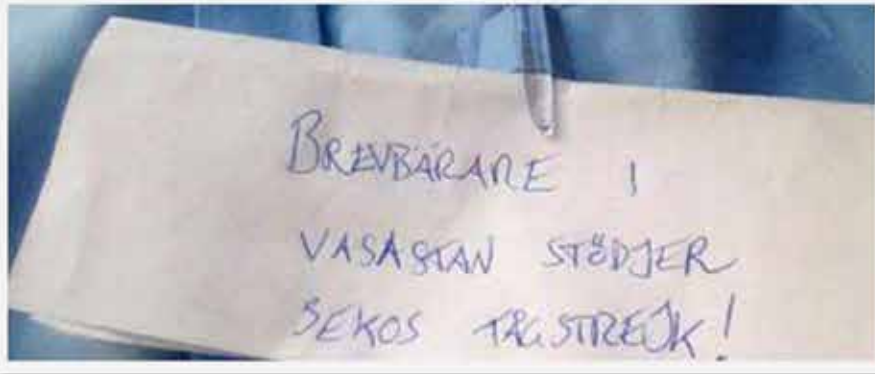 BREVBÄRARE I
VASASTAN STÖDJER
SEKOS TÅGSTREJK!